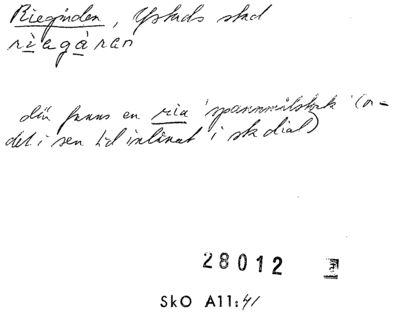 Riegården, Ystads stad
riegåren
där fanns en ria 'spannmålstork' (or-
det i sen tid inlånat i sk dial)
28012
SkO A11:41